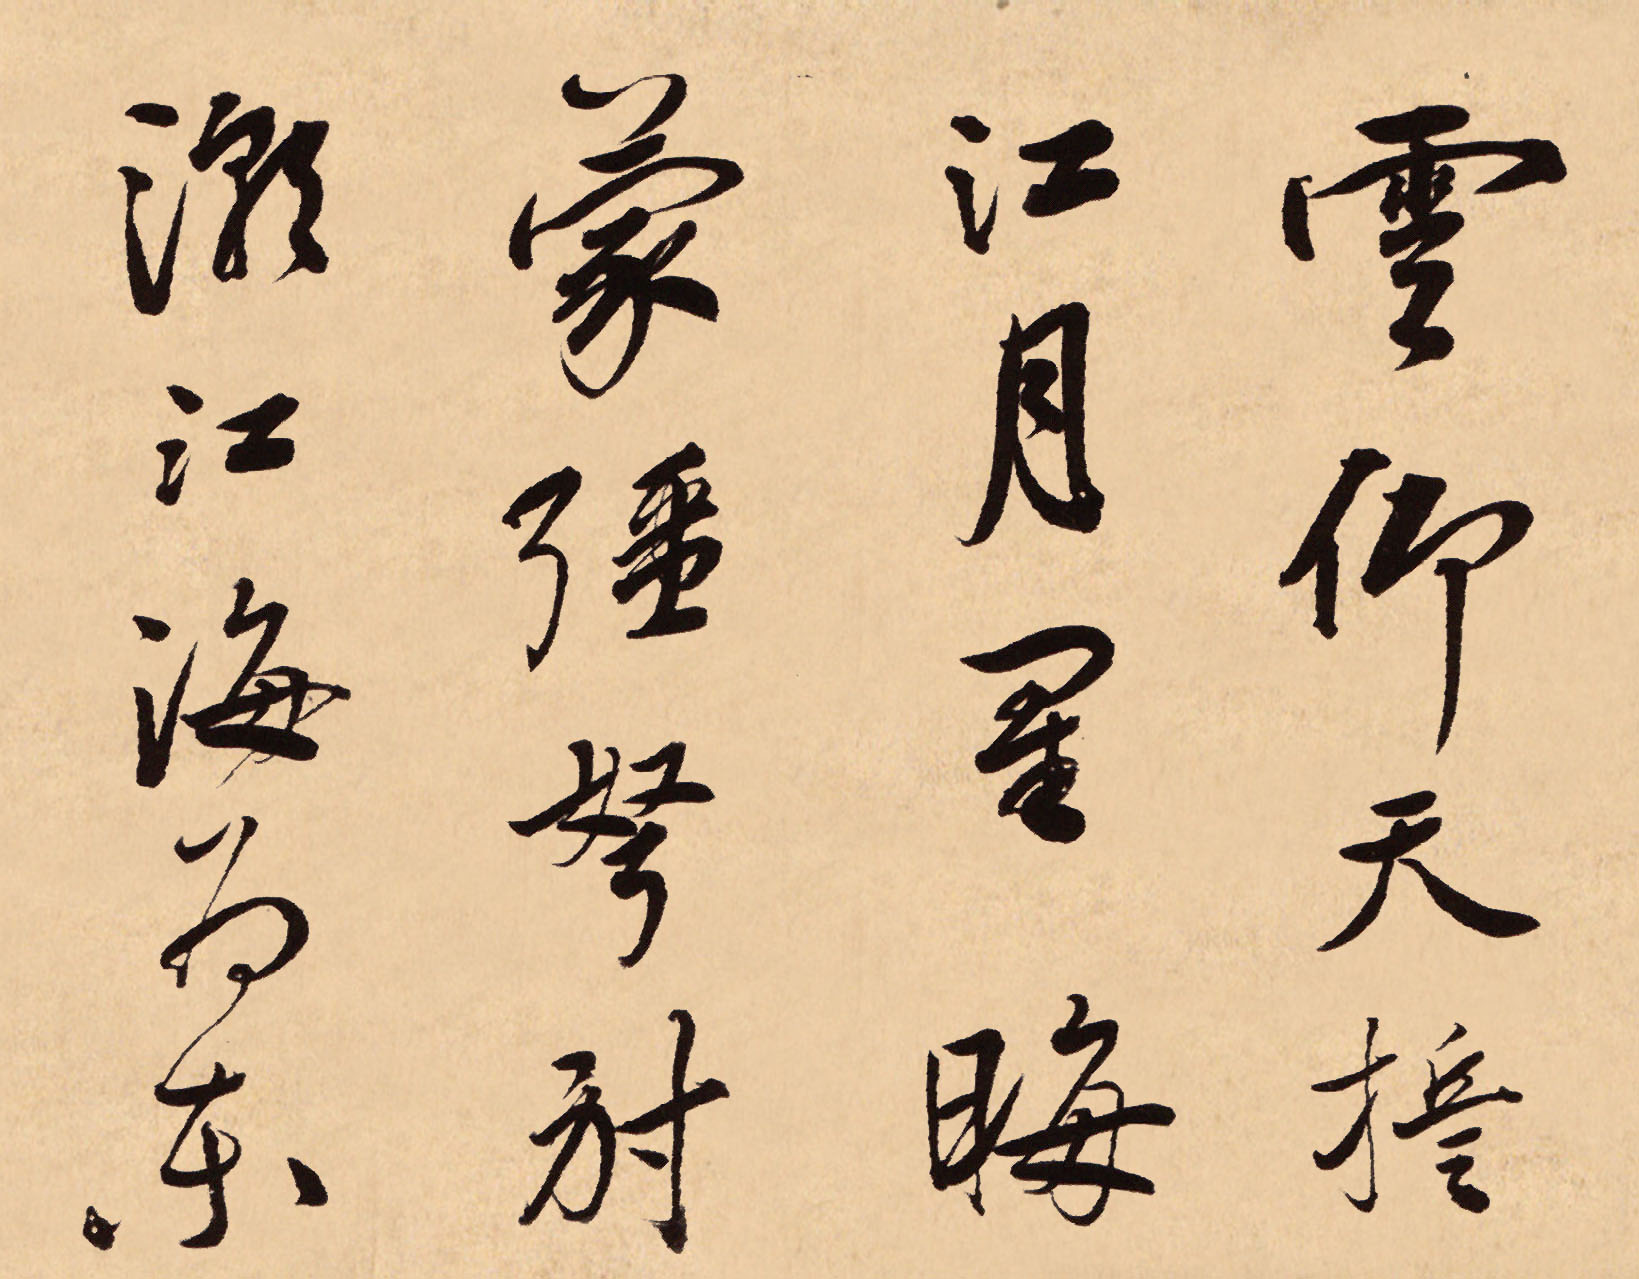 雲仰天誓
江月星晦
蒙彊弩射
潮江海為東